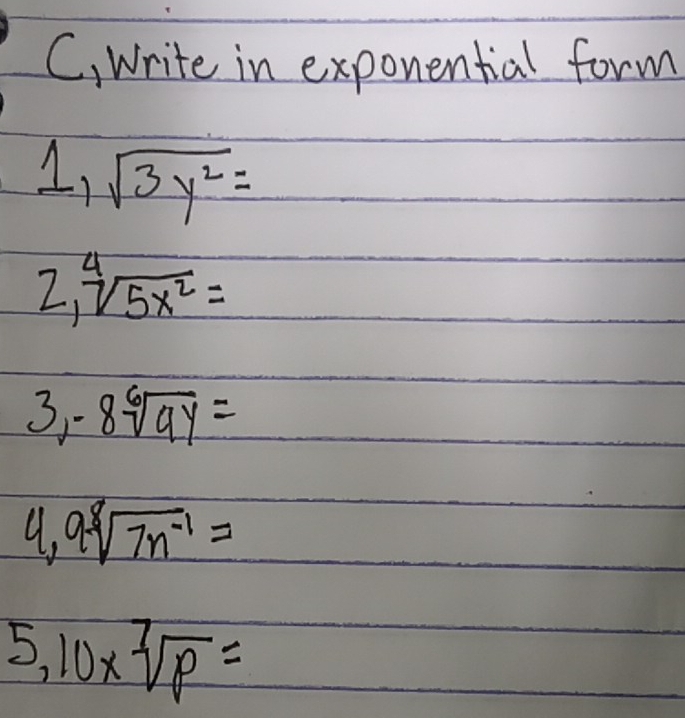 C, Write in exponential form
1, √3y² =
2, ⁴√5x² =
3, -8 ⁶√9y =
4, 9 ⁸√7n⁻¹ =
5, 10x ⁷√p =